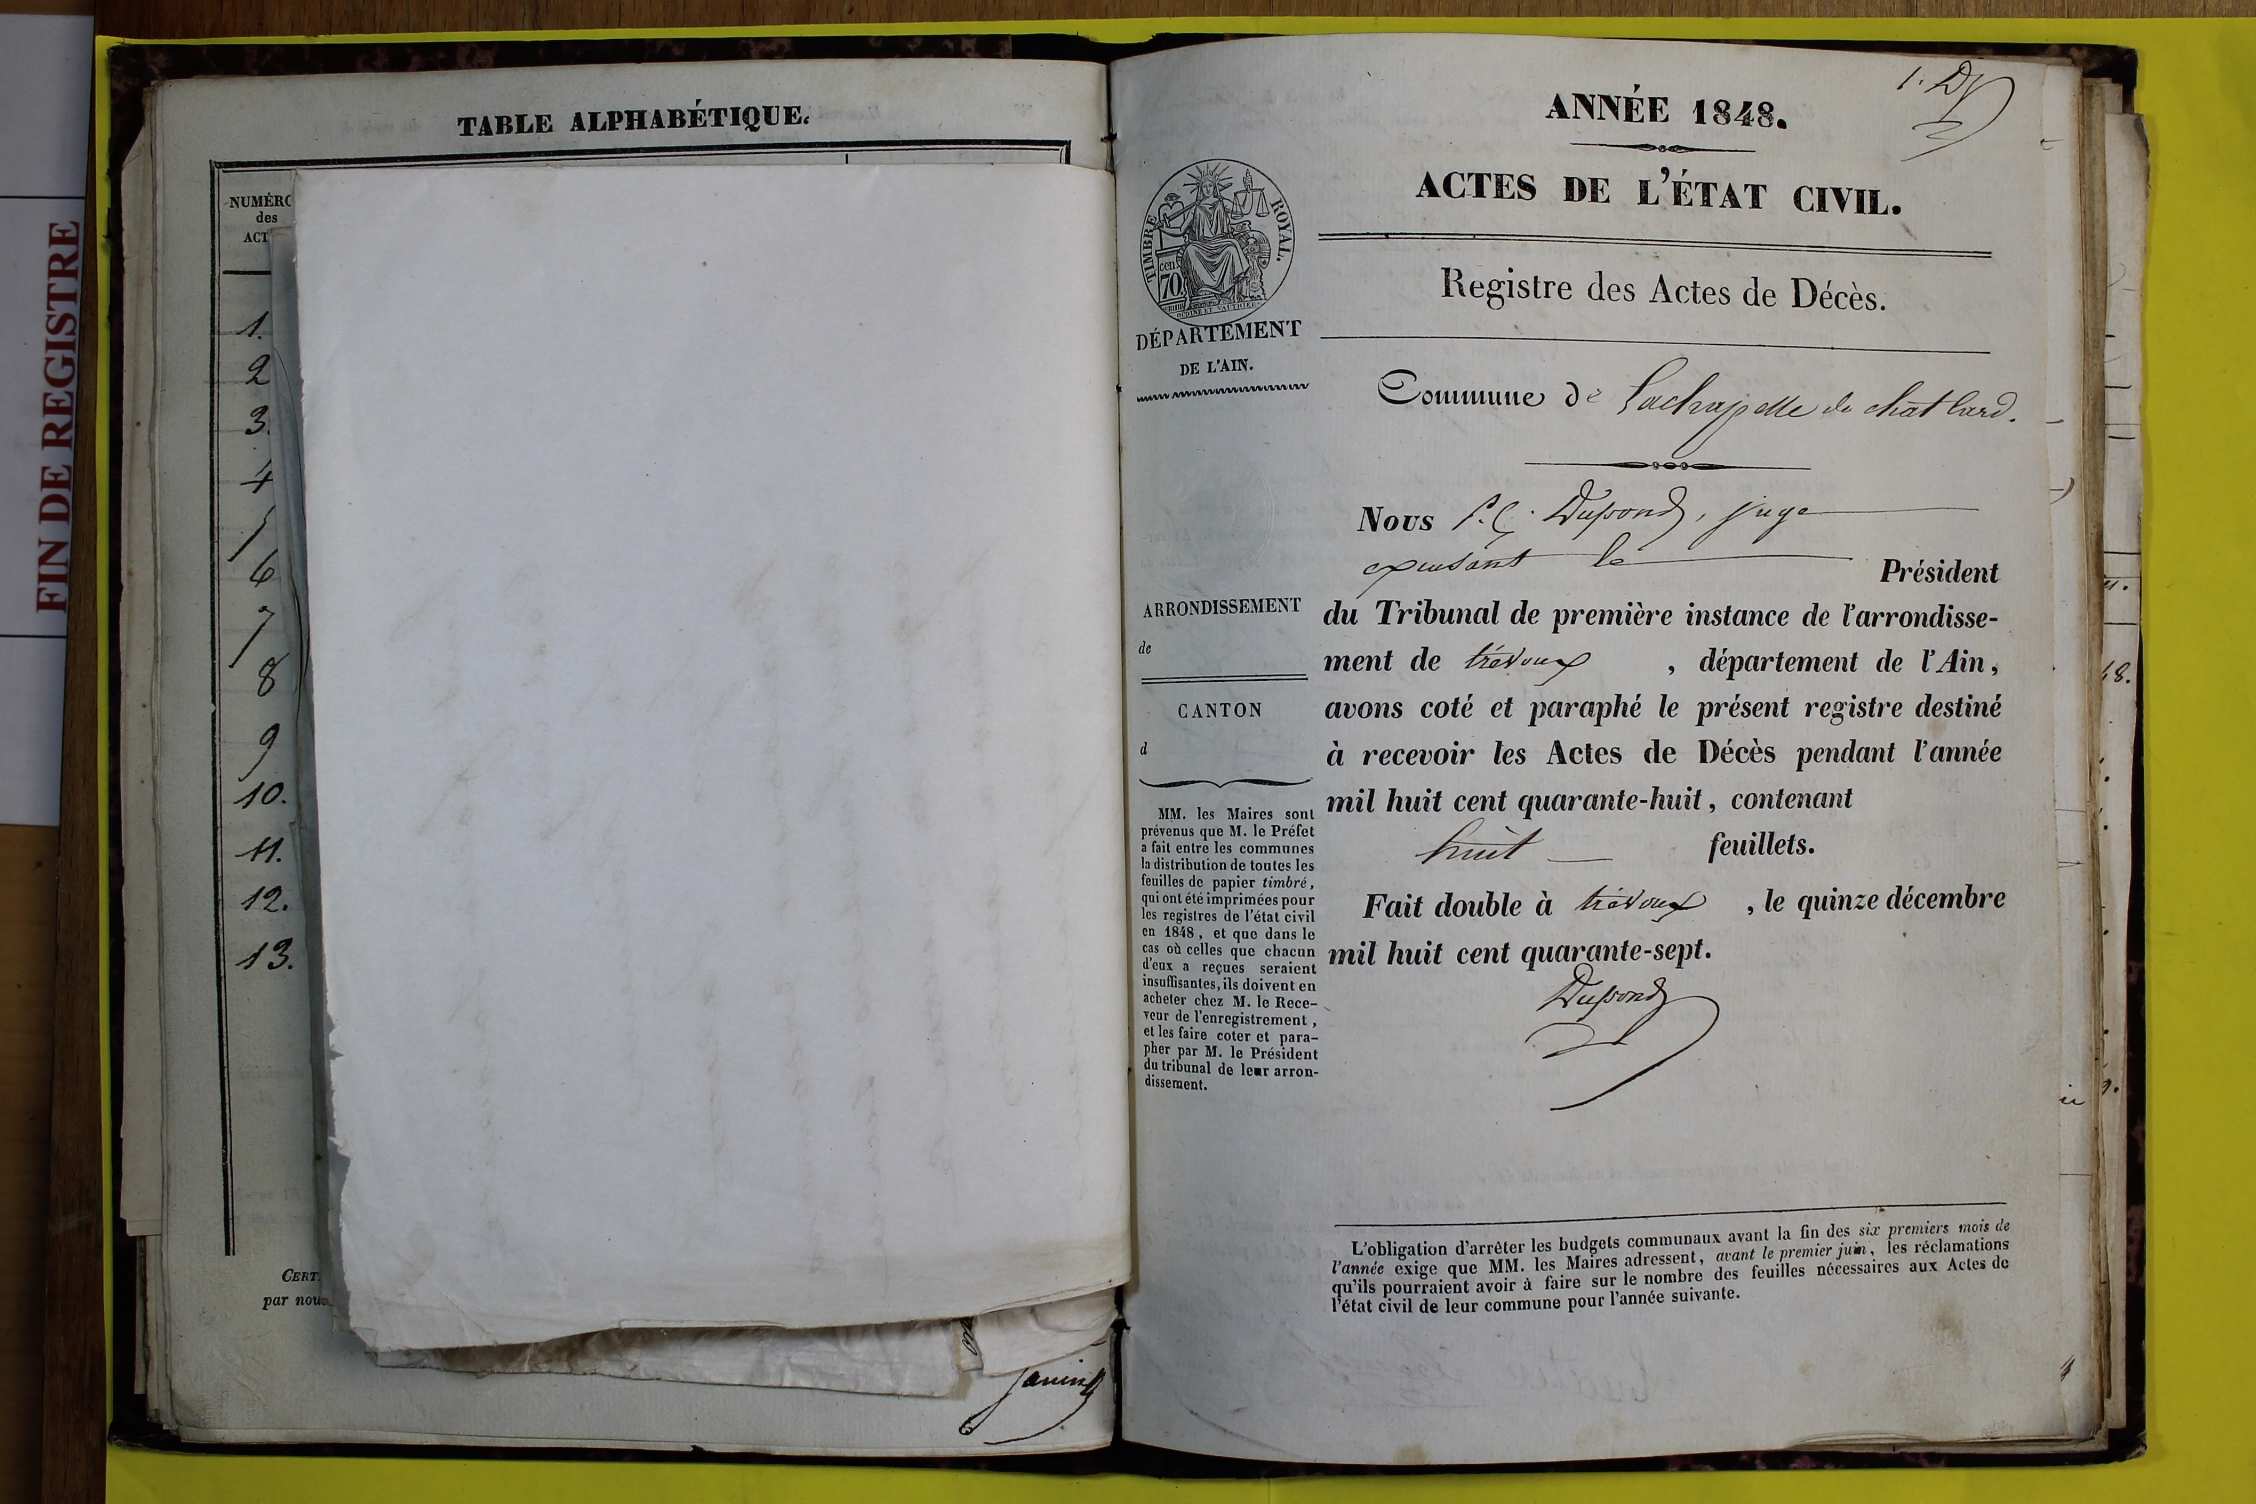 FIN DE REGISTRE
TABLE ALPHABÉTIQUE.
NUMÉRO
des
ACT
1.
2
3.
4
5
6
7
8
9
10.
11.
12.
13.
CERT
par nous
Janin
1. D
ANNÉE 1848.
ACTES DE L'ÉTAT CIVIL.
Registre des Actes de Décès.
TIMBRE ROYAL.
cen
70
DÉPARTEMENT
DE L'AIN.
Commune de Lachapelle du chat lard.
Nous P. C. Dupond, juge
exerçant le Président
du Tribunal de première instance de l'arrondisse-
ment de trévoux , département de l'Ain,
avons coté et paraphé le présent registre destiné
à recevoir les Actes de Décès pendant l'année
mil huit cent quarante-huit, contenant
huit feuillets.
Fait double à trévoux , le quinze décembre
mil huit cent quarante-sept.
Dupond
ARRONDISSEMENT
de
CANTON
d
MM. les Maires sont
prévenus que M. le Préfet
a fait entre les communes
la distribution de toutes les
feuilles de papier timbré,
qui ont été imprimées pour
les registres de l'état civil
en 1848, et que dans le
cas où celles que chacun
d'eux a reçues seraient
insuffisantes, ils doivent en
acheter chez M. le Rece-
veur de l'enregistrement,
et les faire coter et para-
pher par M. le Président
du tribunal de leur arron-
dissement.
L'obligation d'arrêter les budgets communaux avant la fin des six premiers mois de
l'année exige que MM. les Maires adressent, avant le premier juin, les réclamations
qu'ils pourraient avoir à faire sur le nombre des feuilles nécessaires aux Actes de
l'état civil de leur commune pour l'année suivante.